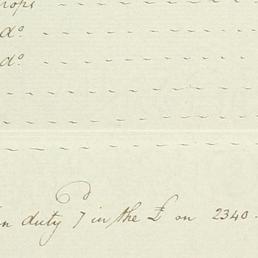 rops
do
do
n duty 7 in the £ on 2340